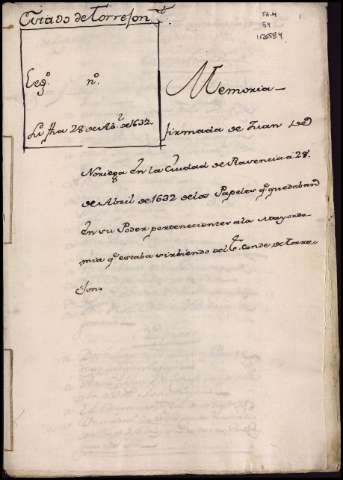 Estado de Torrejon
Leg.º n.º
Su fha 28 de Ab.l de 1632
Memoria
firmada de Juan
Noriega en la Ciudad de Plasencia a 28
de Abril de 1632 de los Papeles q.e quedaban
en su Poder pertenecientes a la Mayordo
mia q.e estaba sirbiendo del S.r Conde de Torre
jon